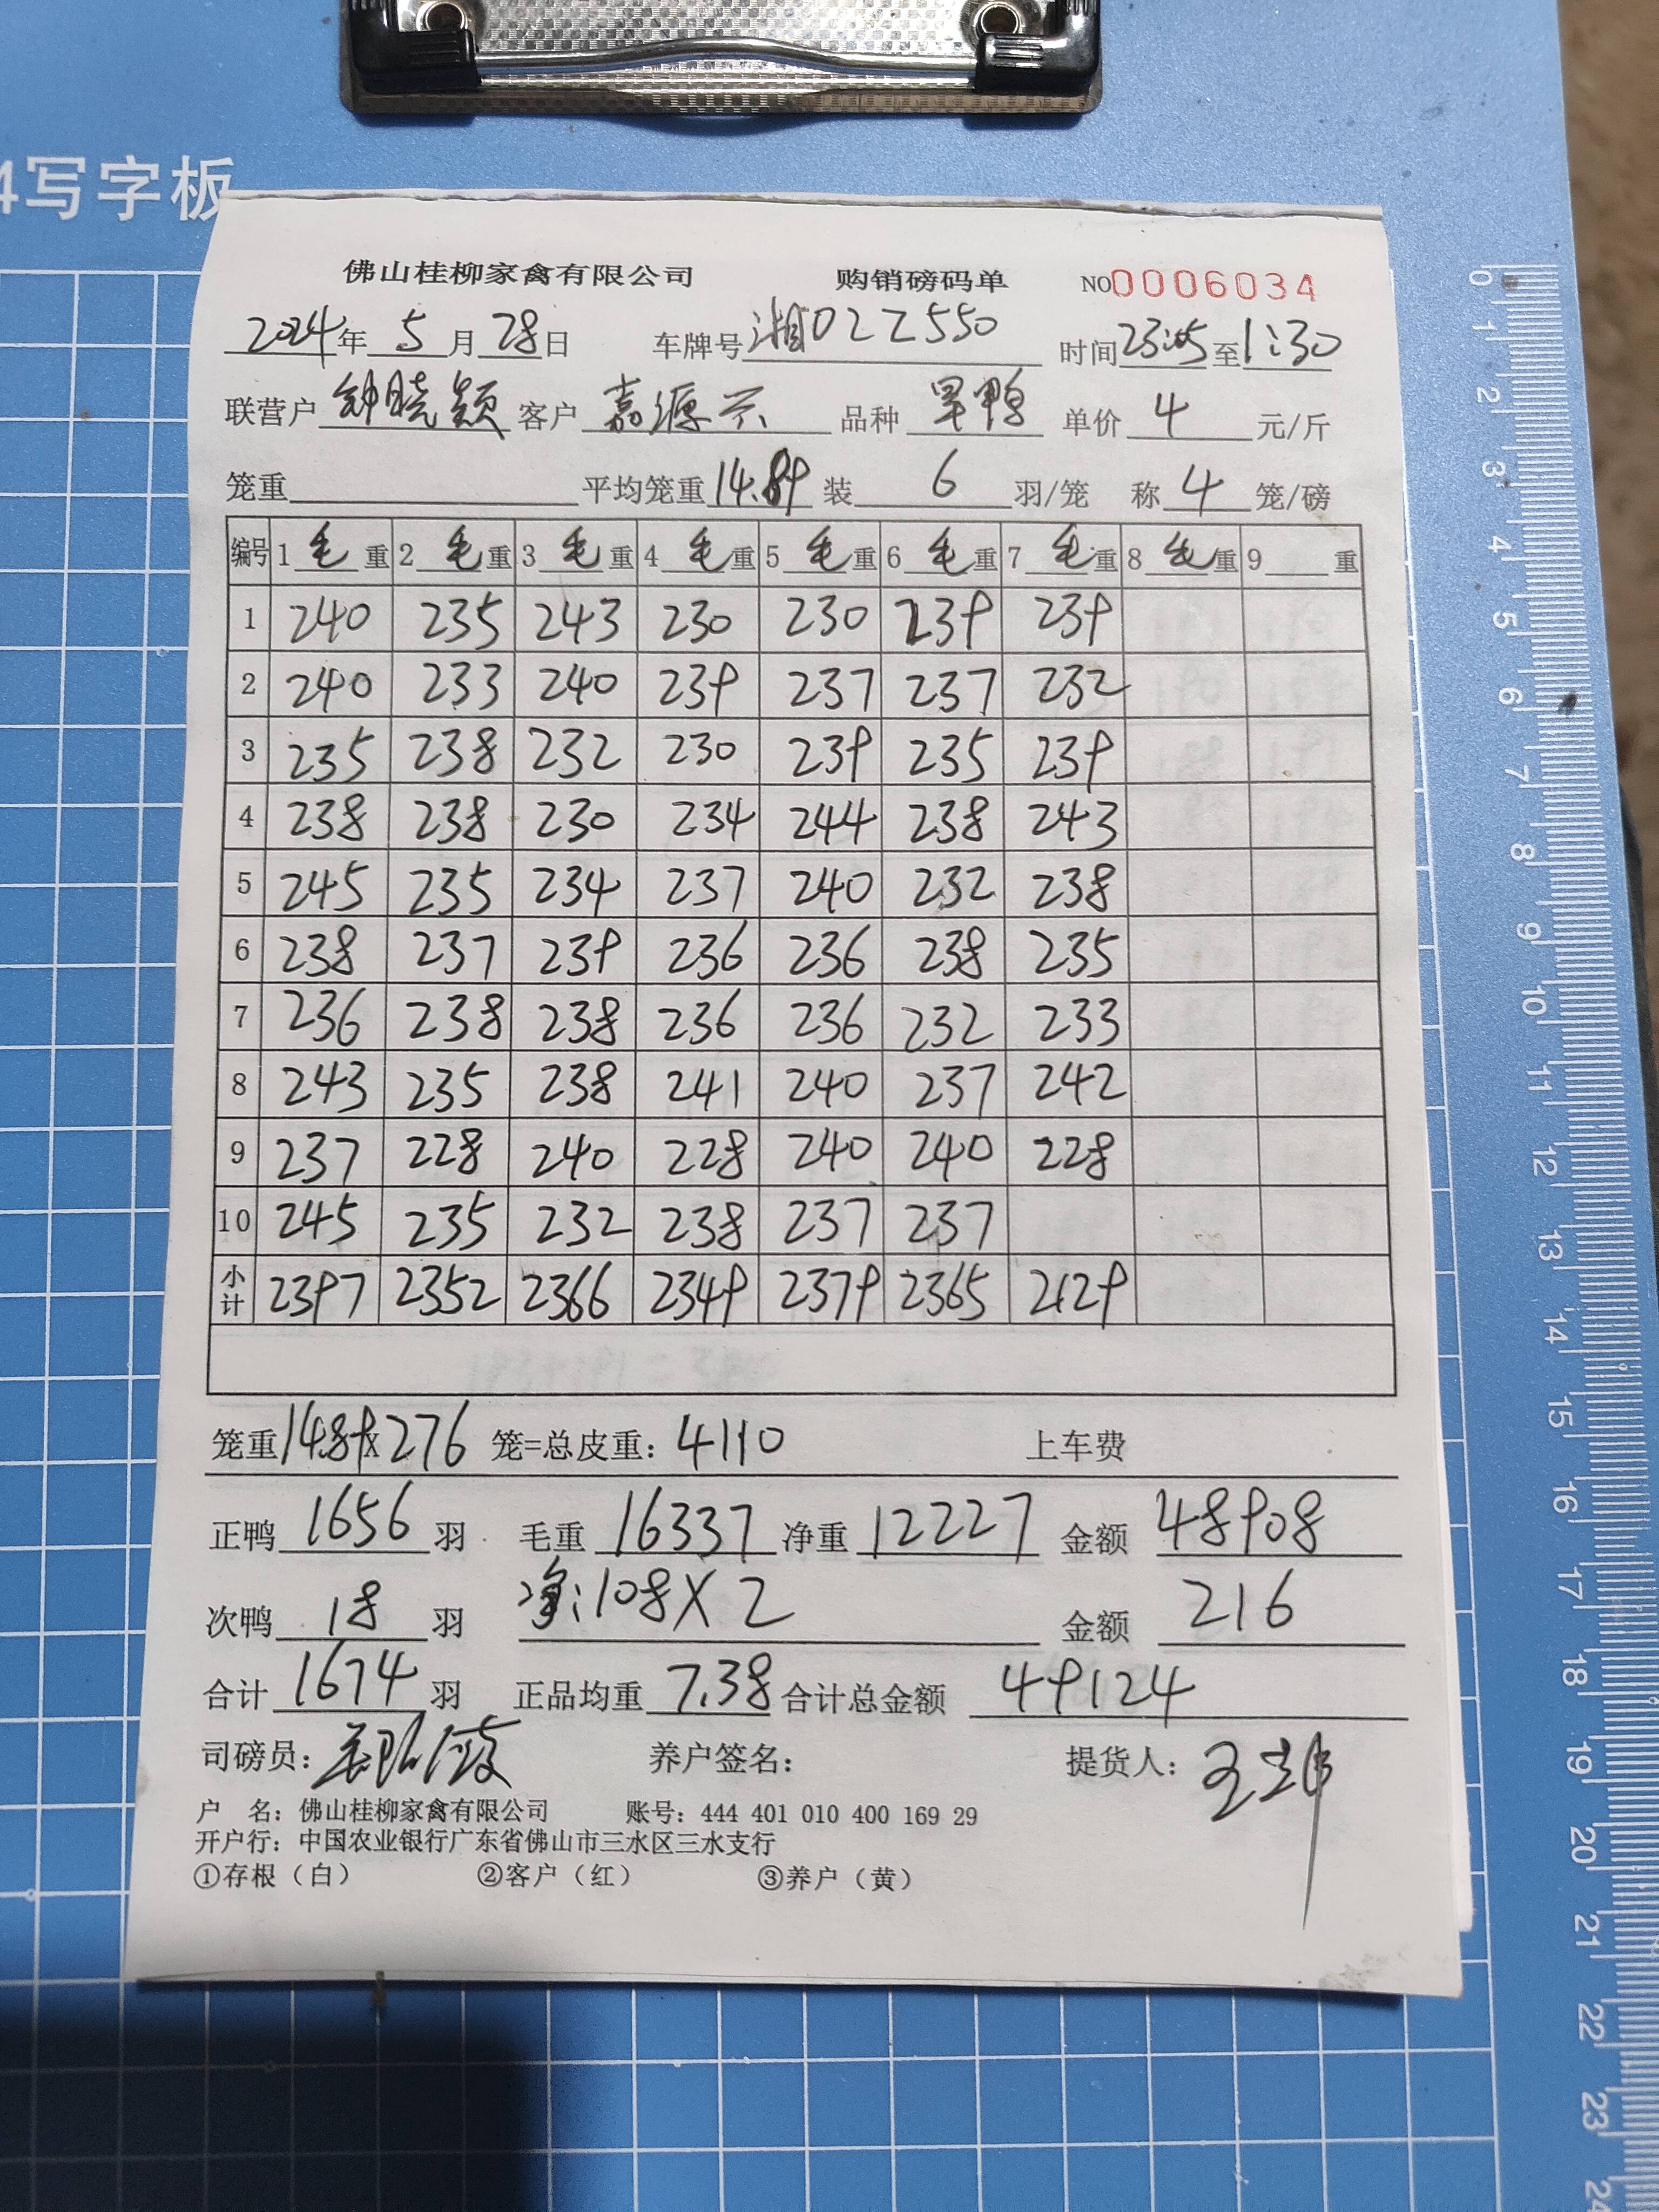 4写字板
佛山桂柳家禽有限公司 购销磅码单 NO0006034
2024年5月28日 车牌号湘D2Z550 时间23:05至1:30
联营户钟晓颖客户嘉源兴品种旱鸭单价4元/斤
笼重 平均笼重14.89装6羽/笼 称4笼/磅
编号 1毛重 2毛重 3毛重 4毛重 5毛重 6毛重 7毛重 8毛重 9重
1 240 235 243 230 230 239 239
2 240 233 240 239 237 237 232
3 235 238 232 230 239 235 239
4 238 238 230 234 244 238 243
5 245 235 234 237 240 232 238
6 238 237 239 236 236 238 235
7 236 238 238 236 236 232 233
8 243 235 238 241 240 237 242
9 237 228 240 228 240 240 228
10 245 235 232 238 237 237
小计 2397 2352 2366 2349 2379 2365 2129
笼重14.89x276笼=总皮重：4110 上车费
正鸭1656羽 毛重16337净重12227金额48908
次鸭18羽 净:108X2 金额216
合计1674羽 正品均重7.38合计总金额49124
司磅员： 养户签名： 提货人：
户 名：佛山桂柳家禽有限公司 账号：444 401 010 400 169 29
开户行：中国农业银行广东省佛山市三水区三水支行
①存根（白） ②客户（红） ③养户（黄）
0
1
2
3
4
5
6
7
8
9
10
11
12
13
14
15
16
17
18
19
20
21
22
23